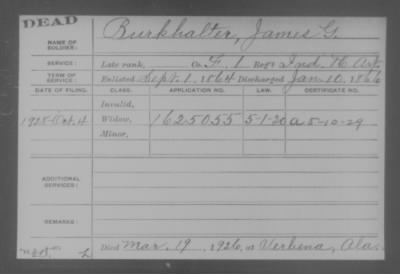 DEAD
NAME OF SOLDIER: Burkhalter, James G.
SERVICE: Late rank, Co. G, 1 Reg't Ind. H. Art.
TERM OF SERVICE: Enlisted Sept. 1, 1864 Discharged Jan. 10, 1866
DATE OF FILING. CLASS. APPLICATION NO. LAW. CERTIFICATE NO.
Invalid,
1928 Oct. 4 Widow, 1625055 5-1-20 a 5-10-29
Minor,
ADDITIONAL SERVICES:
REMARKS:
Died Mar. 19, 1926, at Verbena, Ala.